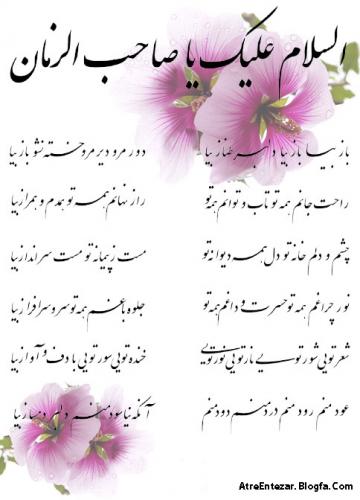 السلام علیک یا صاحب الزمان
باز بیا باز بیا دلبر طناز بیا دور مرو دیر مرو خسته نشو باز بیا
راحت جانم همه تو تاب و توانم همه تو راز نهانم همه تو همدم و همراز بیا
چشم و دلم خانه تو دل همه دیوانه تو مست ز پیمانه تو مست سرانداز بیا
نور چراغم همه تو حسرت و داغم همه تو جلوه باغم همه تو سرو سرافراز بیا
شعر تویی شور تویی ناز تویی نور تویی خنده تویی سور تویی با دف و آواز بیا
عود منم رود منم درد منم دود منم آنکه نیاسود منم
AtreEntezar. Blogfa. Com